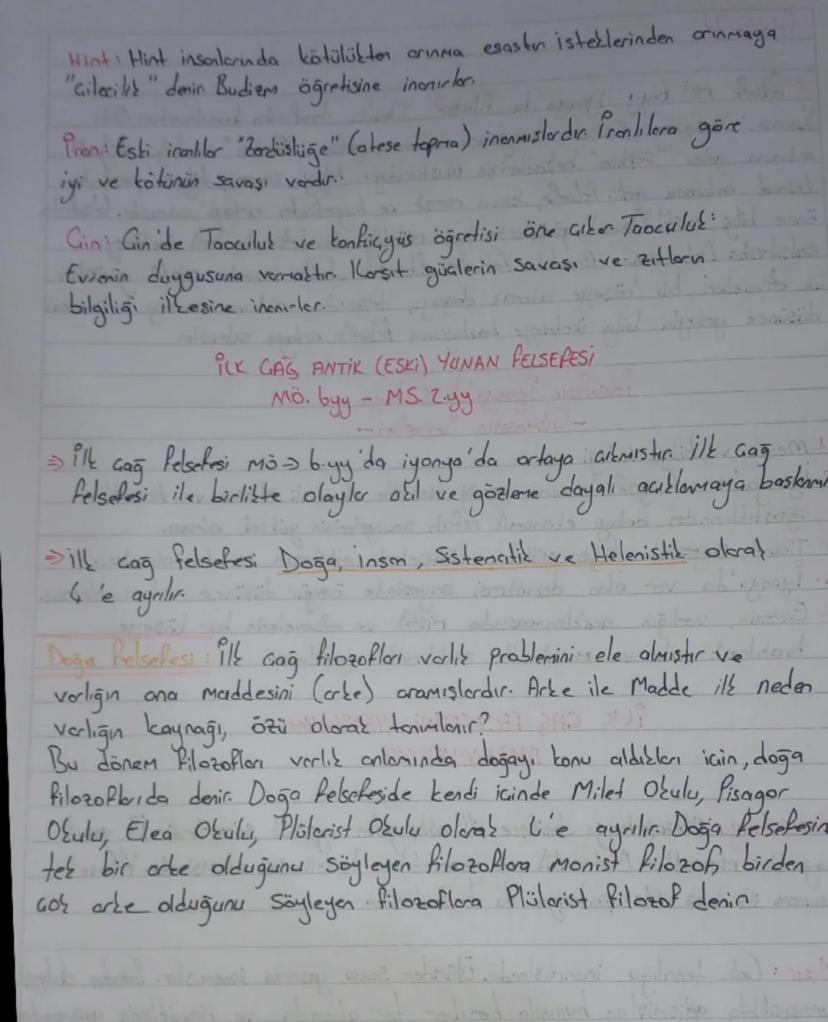 Hint: Hint insanlarında kötülükten arınma esastır isteklerinden arınmaya
"Çilecilik" denir. Budizm öğretisine inanırlar.
İran: Eski iranlılar "Zerdüslüğe" (atese tapma) inanmıslardır. İranlılara göre
iyi ve kötünün savaşı vardır.
Çin: Çin'de Taoculuk ve konfüçyüs öğretisi öne çıkar. Taoculuk:
Evrenin duygusuna varmaktır. Karşıt güçlerin savaşı ve zıtların
bilgiliği ilkesine inanırlar.
İLK ÇAĞ ANTİK (ESKİ) YUNAN FELSEFESİ
MÖ. 6yy - MS. 2.yy
⇒ İlk çağ felsefesi MÖ → 6.yy'da iyonya'da ortaya çıkmıştır. İlk çağ
felsefesi ile birlikte olaylar akıl ve gözleme dayalı açıklamaya
⇒ ilk çağ felsefesi Doğa, insan, Sistematik ve Helenistik olarak
4'e ayrılır.
Doğa Felsefesi: İlk çağ filozofları varlık problemini ele almıştır ve
varlığın ana maddesini (arke) aramışlardır. Arke ile Madde ilk neden
varlığın kaynağı, özü olarak tanımlanır?
Bu dönem filozofları varlık anlamında doğayı konu aldıkları için, doğa
filozofları da denir. Doğa felsefeside kendi içinde Milet Okulu, Pisagor
Okulu, Elea Okulu, Plülarist Okulu olarak 4'e ayrılır. Doğa felsefesin
tek bir arke olduğunu söyleyen filozoflara monist filozof, birden
çok arke olduğunu söyleyen filozoflara Plülarist filozof denir.